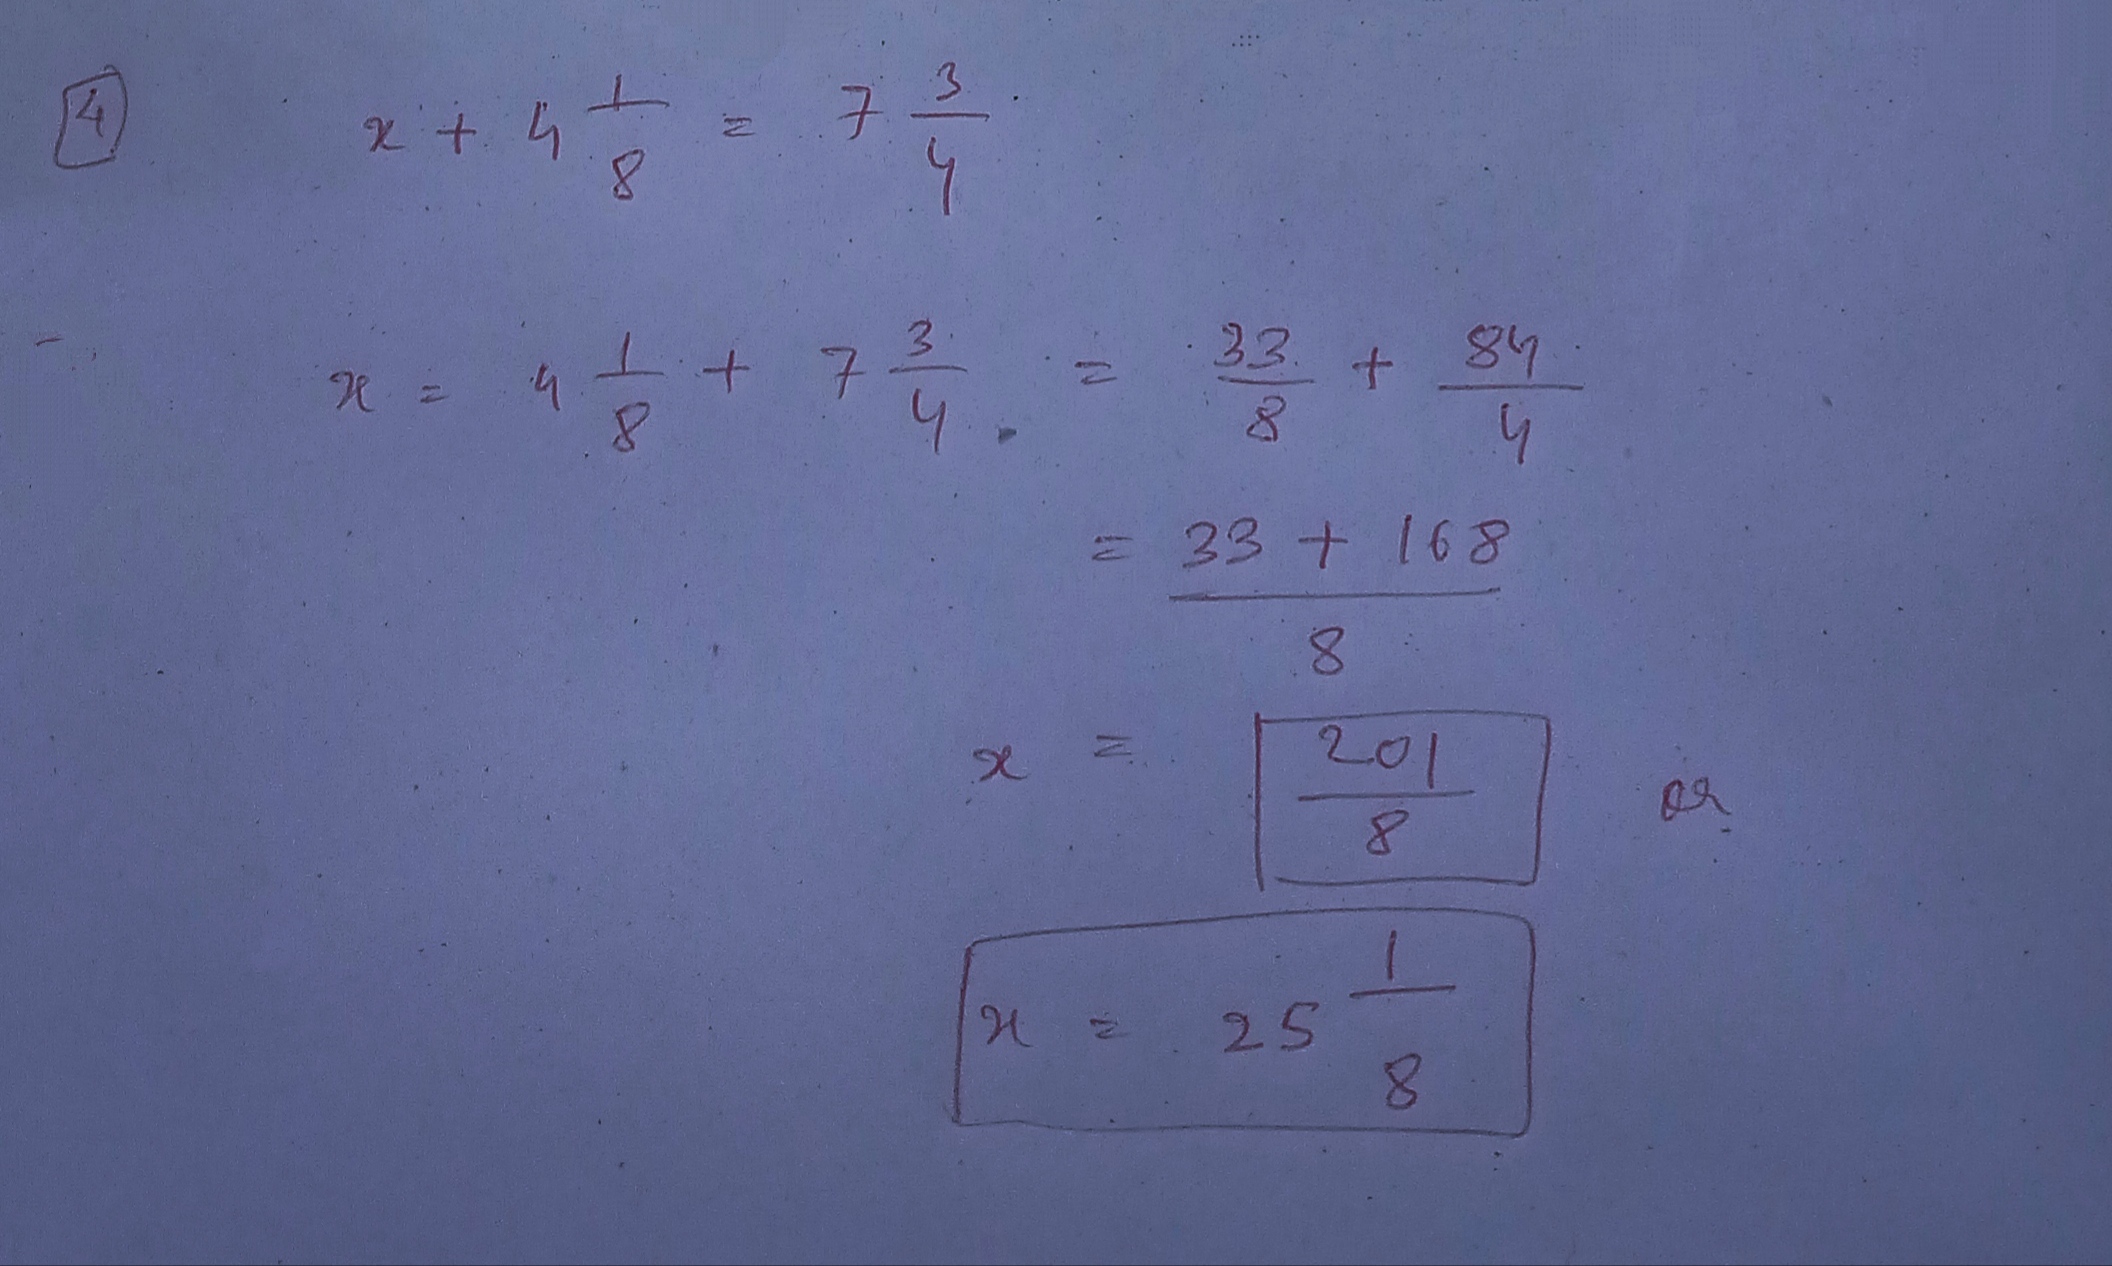 4 x + 4 1/8 = 7 3/4
x = 4 1/8 + 7 3/4 = 33/8 + 84/4
= 33 + 168 / 8
x = 201/8 or
x = 25 1/8